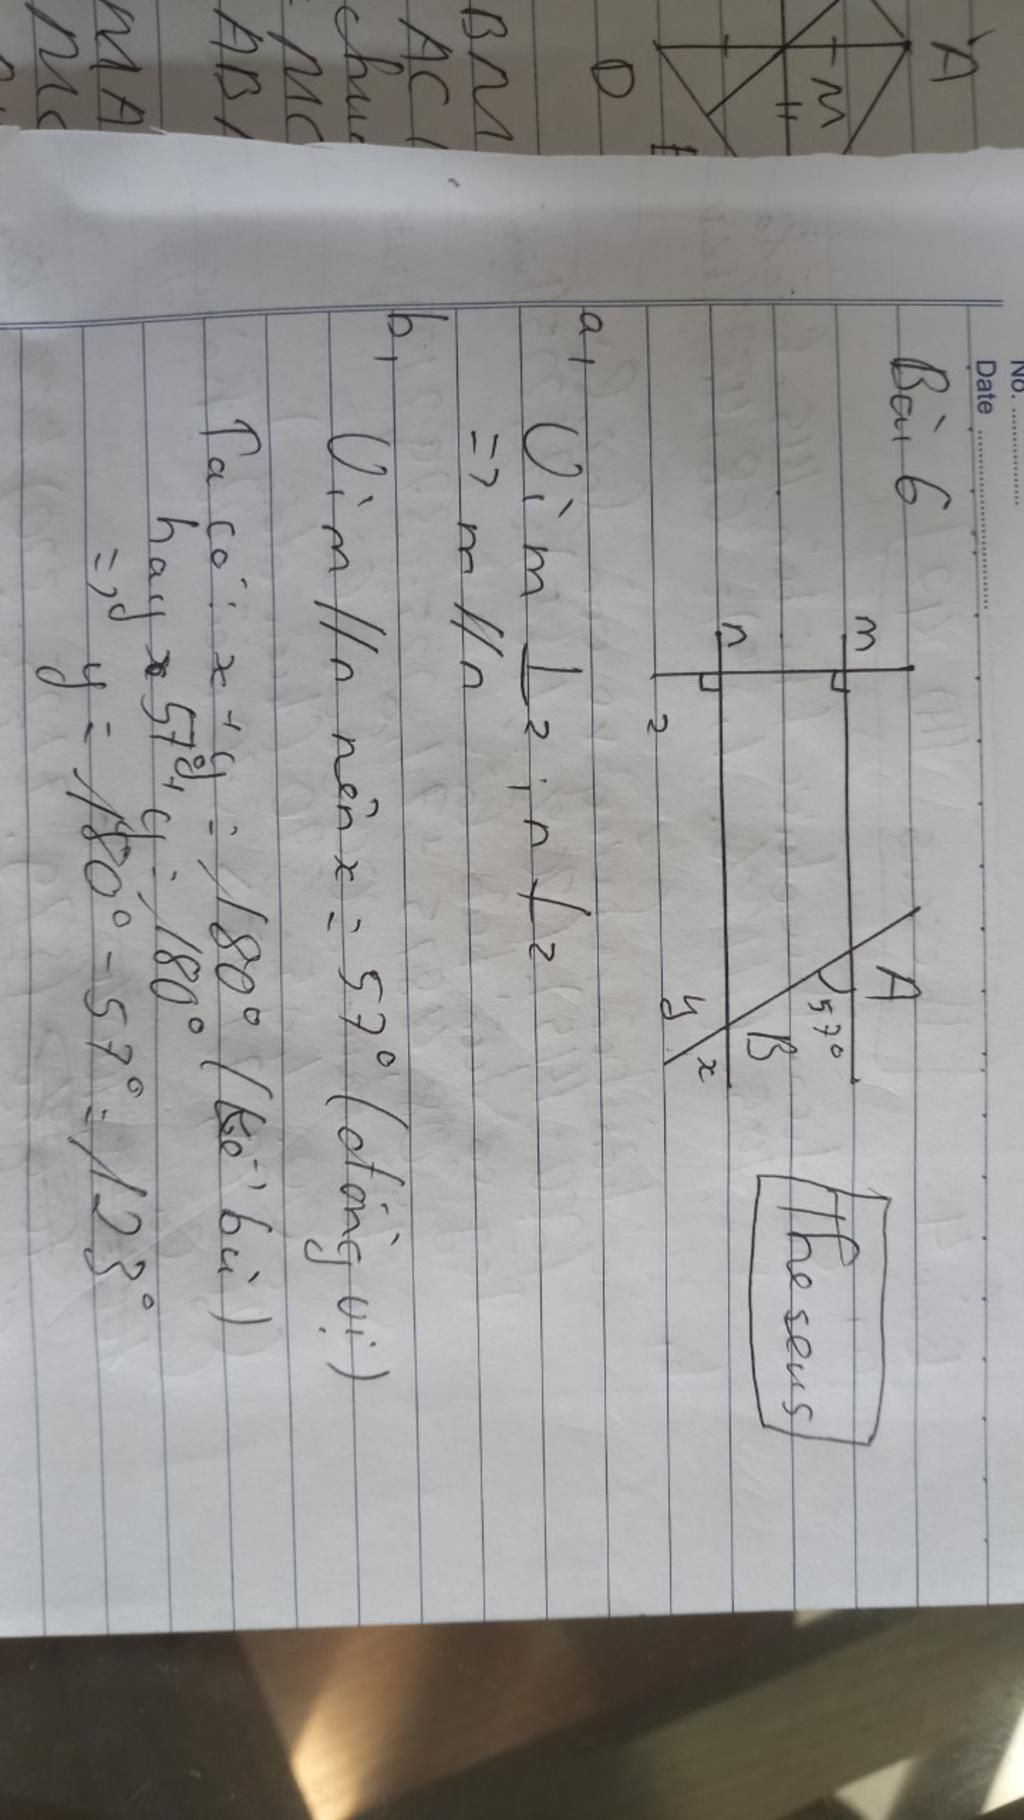 No.
Date
Bài 6
Theseus
m
A
57°
n
B
y
x
z
a,
Vì m ⊥ z ; n ⊥ z
=> m // n
b,
Vì m // n nên x = 57° (đồng vị)
Ta có: x + y = 180° (kề bù)
hay 57° + y = 180°
=> y = 180° - 57° = 123°
A
M
D
BM
AC
MC
AB
MA
MC